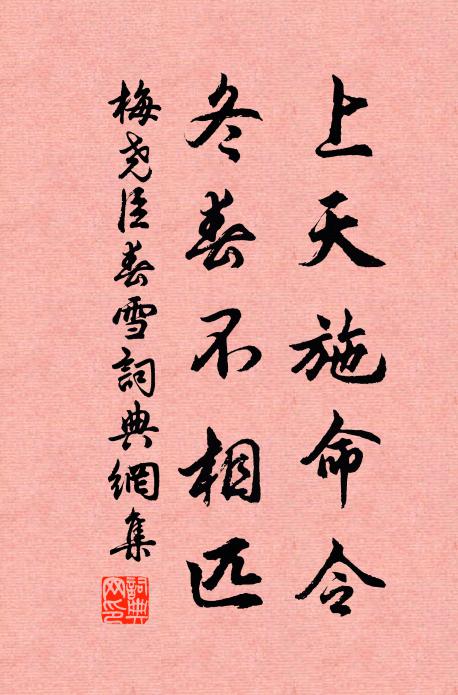 上天施命令
冬春不相匹
梅尧臣春雪詞典網集
詞典网印